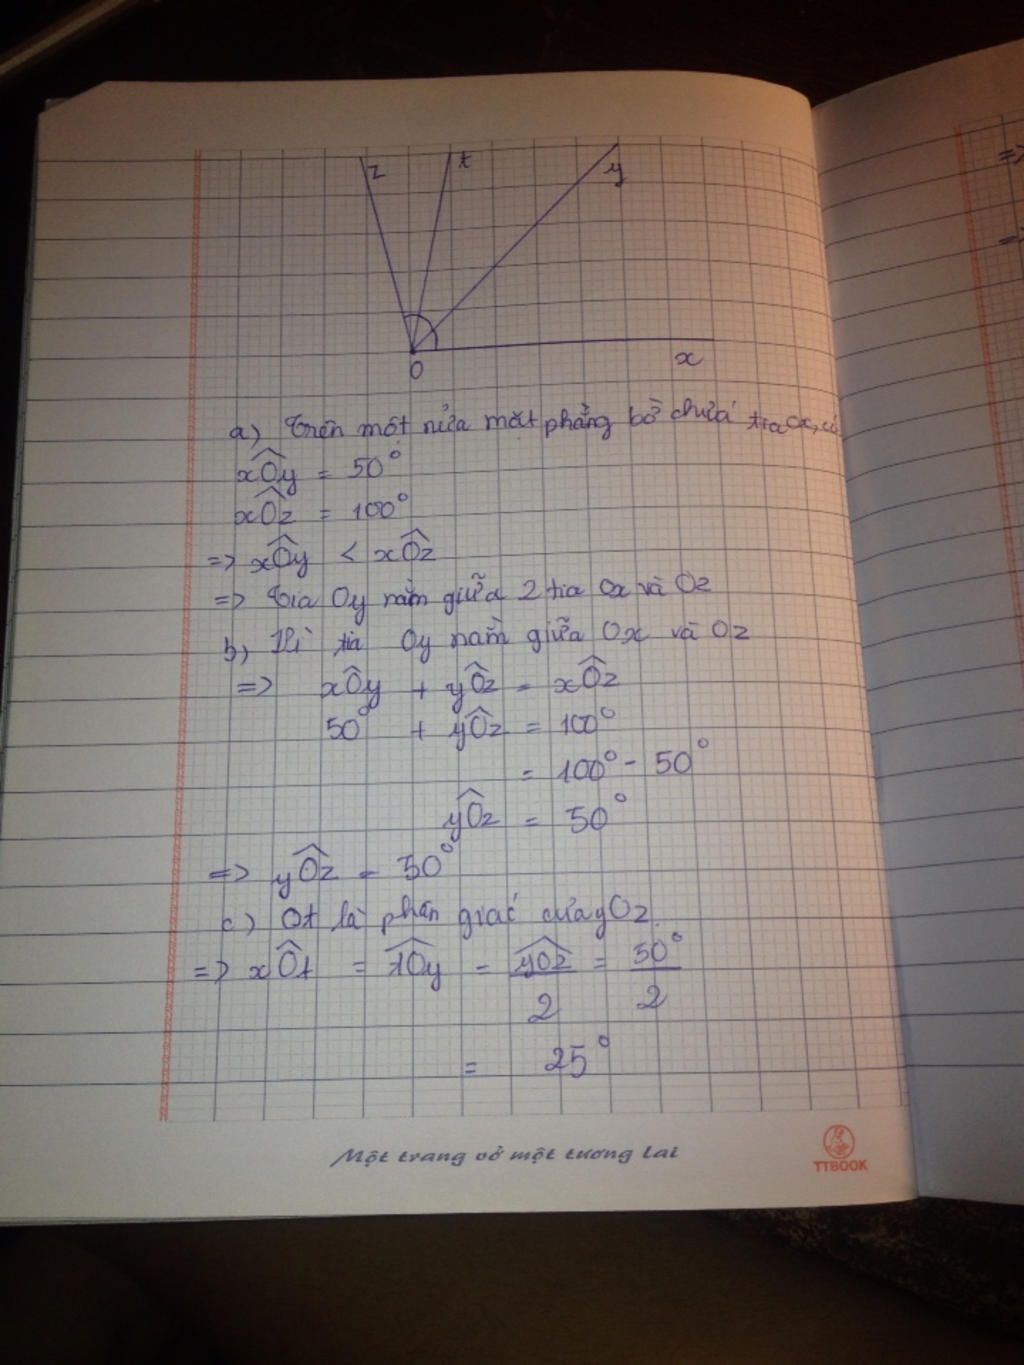 z t y
O x
a) Trên một nửa mặt phẳng bờ chứa tia Ox, có
xÔy = 50°
xÔz = 100°
=> xÔy < xÔz
=> Tia Oy nằm giữa 2 tia Ox và Oz
b) Vì tia Oy nằm giữa Ox và Oz
=> xÔy + yÔz = xÔz
50° + yÔz = 100°
= 100° - 50°
yÔz = 50°
=> yÔz = 50°
c) Ot là phân giác của yOz.
=> xÔt = tÔy = yÔz/2 = 50°/2
= 25°
Một trang vở một tương lai
TTBOOK
=>
=>